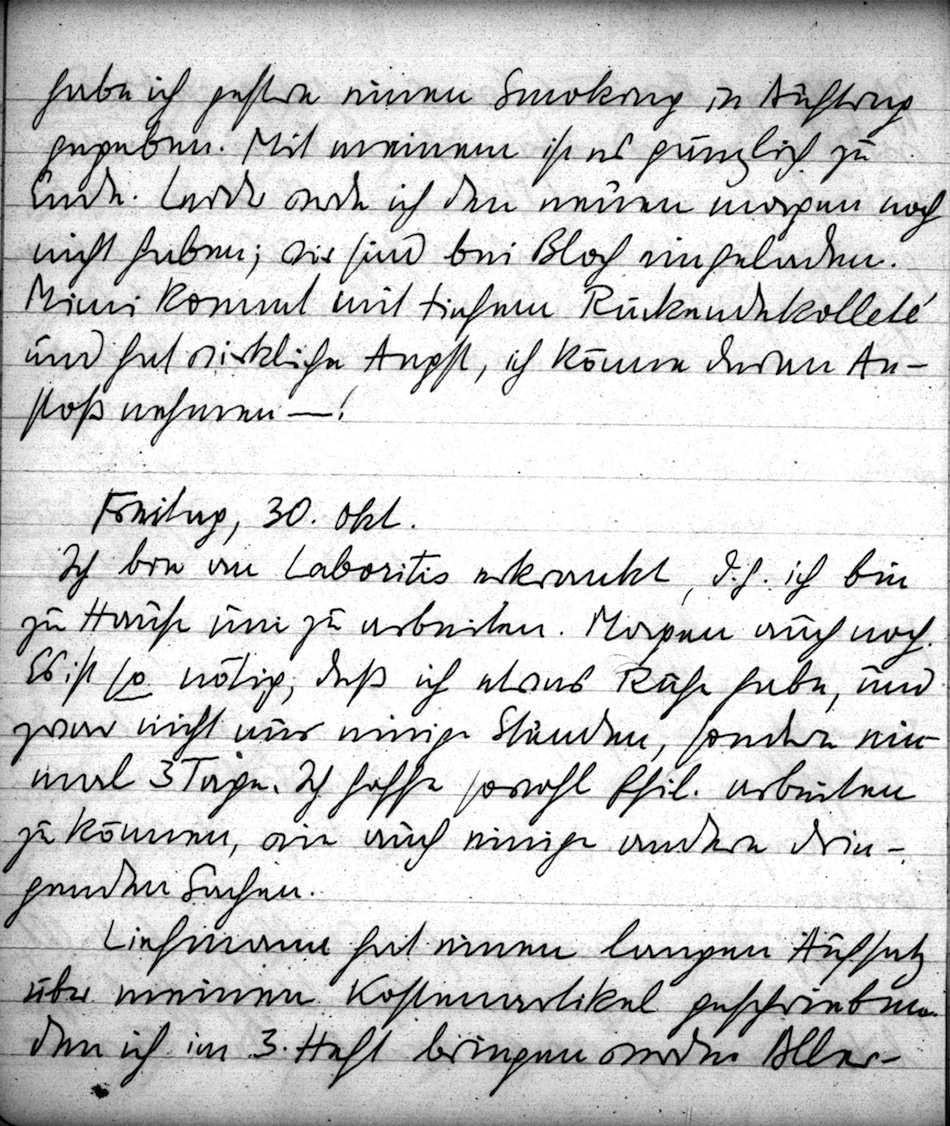 habe ich gestern einen Smoking in Auftrag
gegeben. Mit meinem ist es gänzlich zu
Ende. Leider werde ich den neuen morgen noch
nicht haben; wir sind bei Bloch eingeladen.
Mimi kommt mit tiefem Rückendekolleté
und hat wirkliche Angst, ich könne daran An-
stoß nehmen —!
Freitag, 30. Okt.
Ich bin an Laboritis erkrankt, d.h. ich bin
zu Hause um zu arbeiten. Morgen auch noch.
Es ist so nötig, daß ich etwas Ruhe habe, und
zwar nicht nur einige Stunden, sondern ein-
mal 3 Tage. Ich hoffe sowohl phil. arbeiten
zu können, wie auch einige andere drin-
genden Sachen.
Liefmann hat einen langen Aufsatz
über meinen Kostenartikel geschrieben
den ich im 3. Heft bringen werde. Aller-